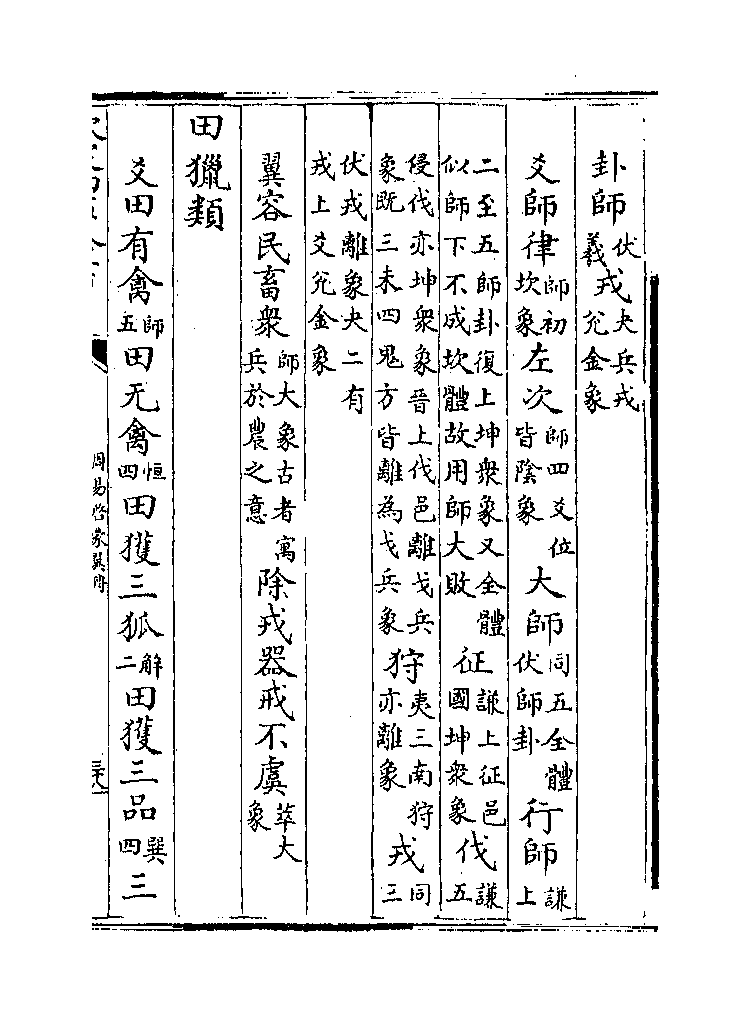 卦師伏羲戎夬兵戎兌金象
爻師律師初坎象左次師四爻位皆陰象大師同五全體伏師卦行師謙上
二至五師卦復上坤衆象又全體似師下不成坎體故用師大敗征謙上征邑國坤衆象伐謙五
侵伐亦坤衆象晉上伐邑離戈兵象既三未四鬼方皆離為戈兵象狩夷三南狩亦離象戎同三
伏戎離象夬二有戎上爻兌金象
翼容民畜衆師大象古者寓兵於農之意除戎器戒不虞萃大象
田獵類
爻田有禽師五田无禽恒四田獲三狐解二田獲三品巽四三
周易啓蒙翼傳